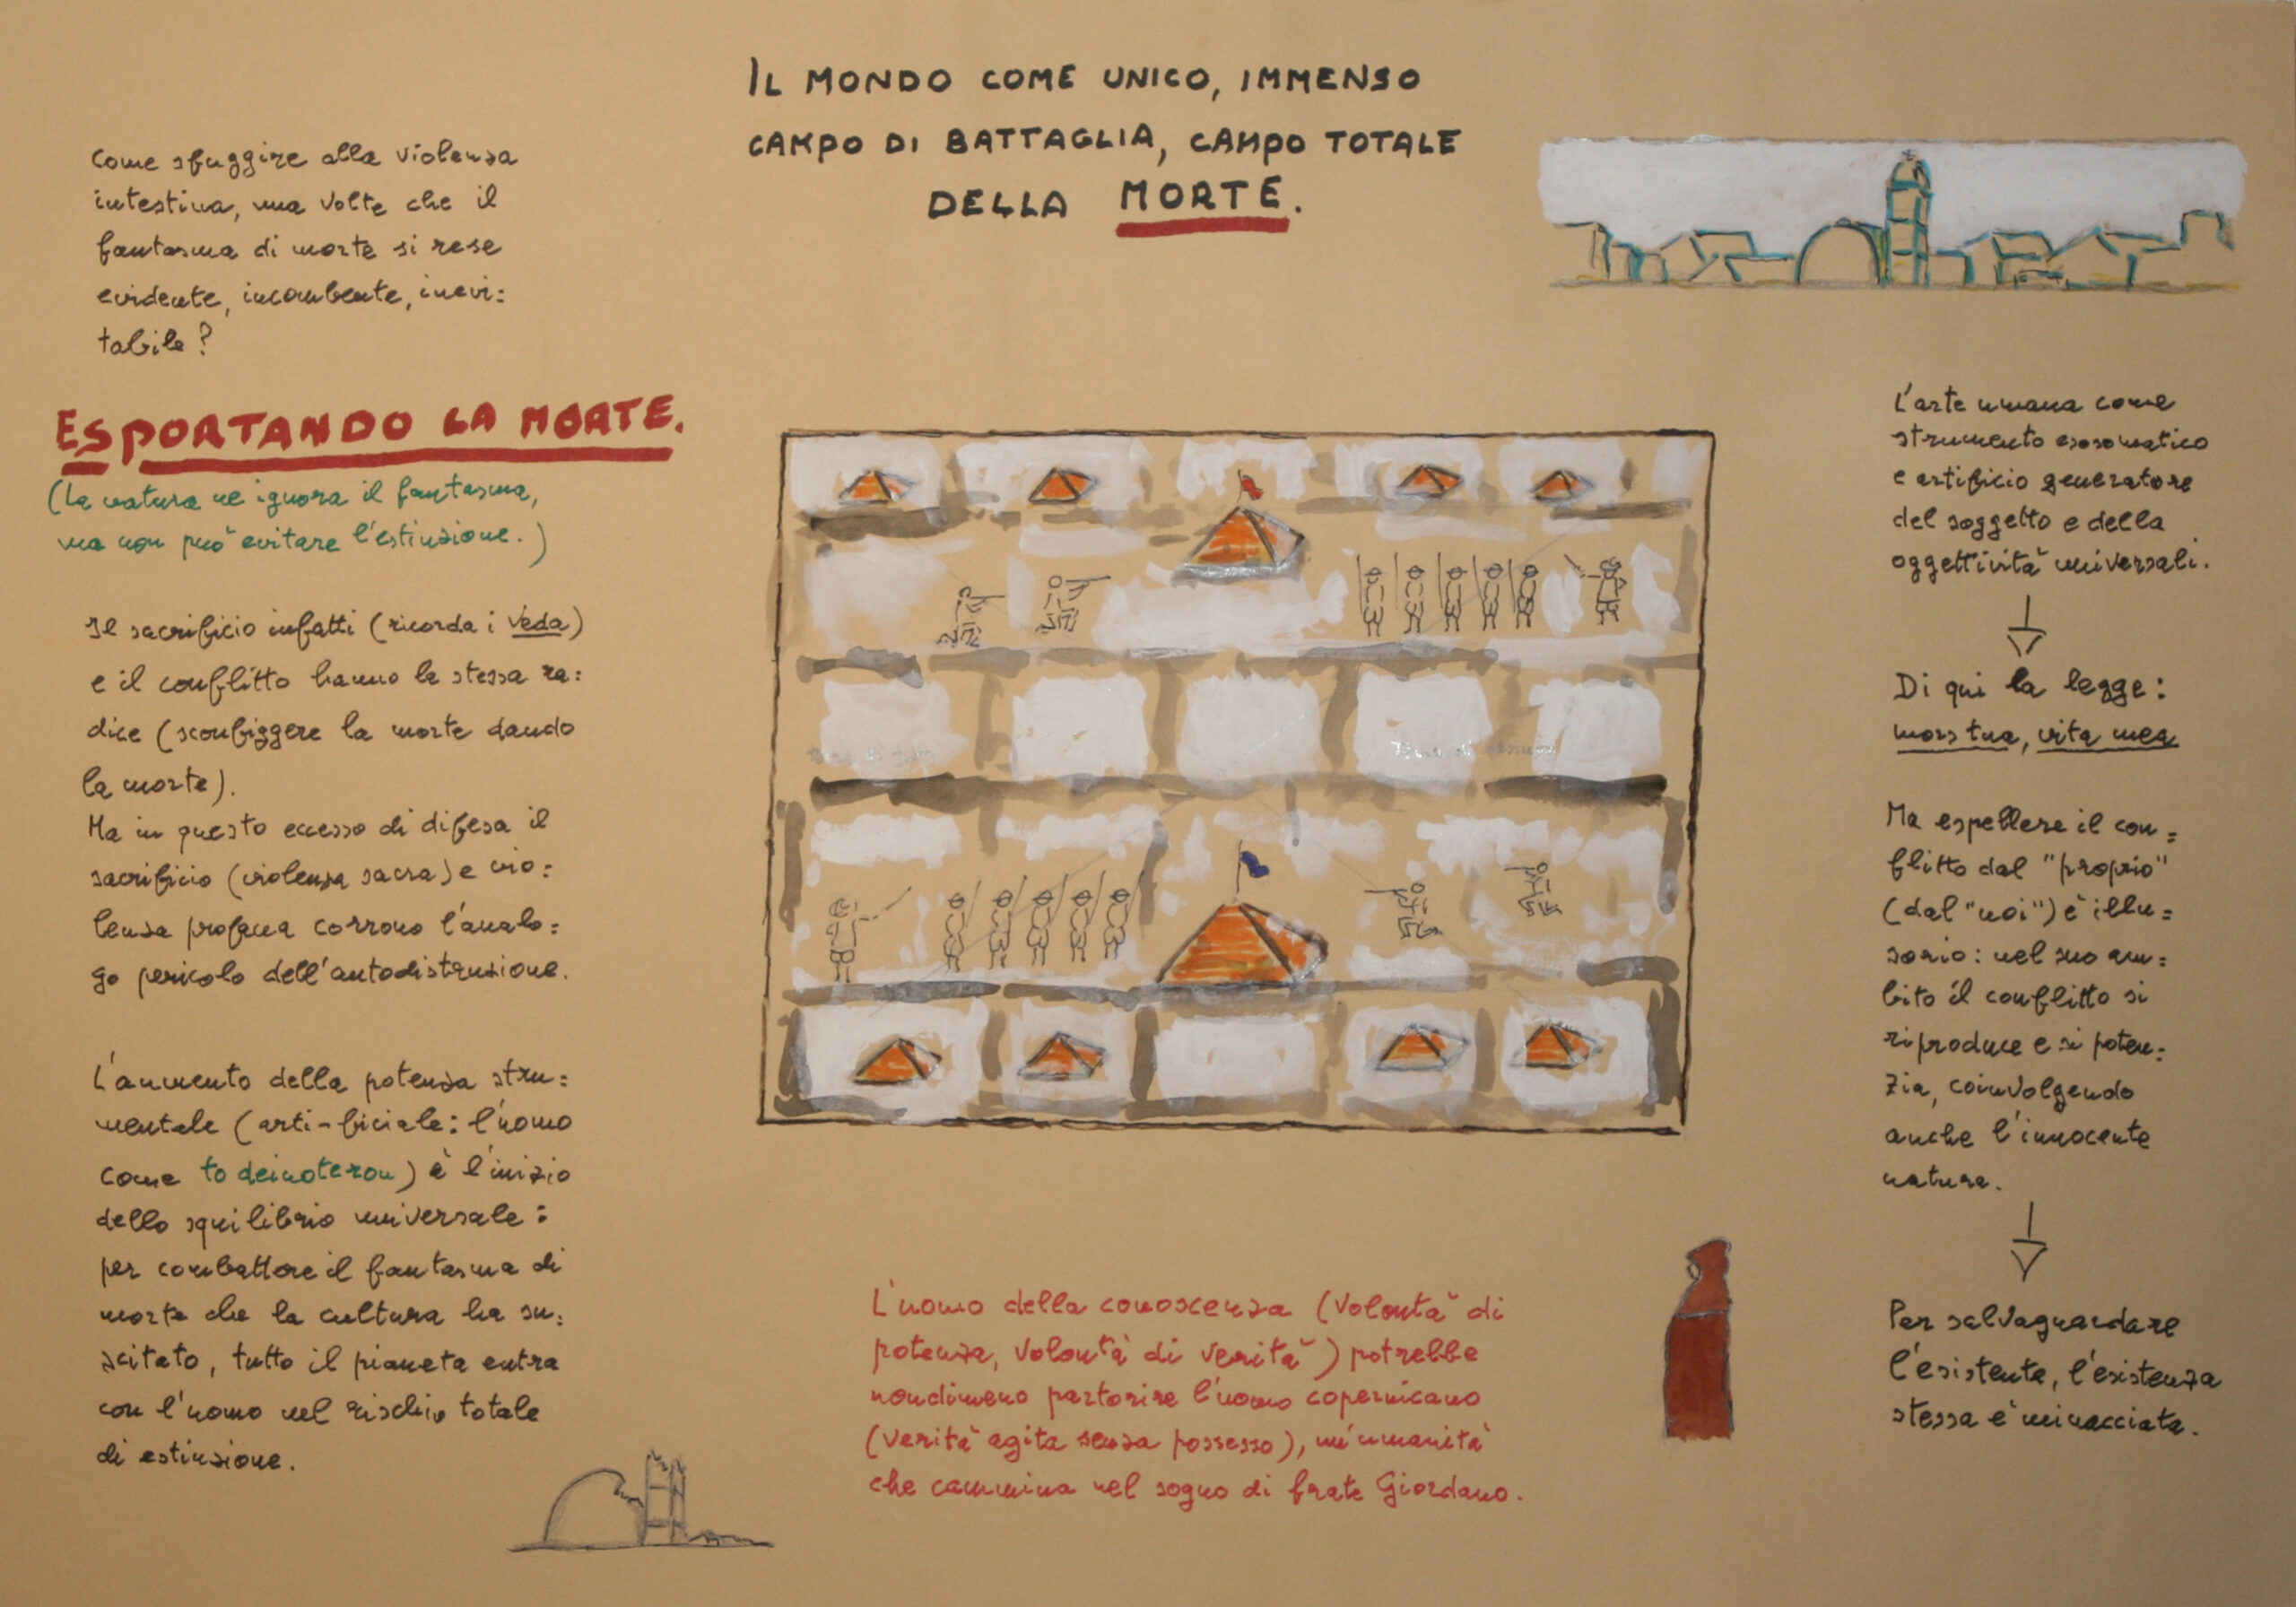 IL MONDO COME UNICO, IMMENSO
CAMPO DI BATTAGLIA, CAMPO TOTALE
DELLA MORTE.
Come sfuggire alla violenza
intestina, una volta che il
fantasma di morte si rese
evidente, incombente, inevi=
tabile?
ESPORTANDO LA MORTE.
(La natura ne ignora il fantasma,
ma non può evitare l'estinzione.)
Il sacrificio infatti (ricorda i Veda)
e il conflitto hanno la stessa ra=
dice (sconfiggere la morte dando
la morte).
Ma in questo eccesso di difesa il
sacrificio (violenza sacra) e vio=
lenza profana corrono l'analo=
go pericolo dell'autodistruzione.
L'aumento della potenza stru=
mentale (arti-ficiale: l'uomo
come to deinoteron) è l'inizio
dello squilibrio universale:
per combattere il fantasma di
morte che la cultura ha su=
scitato, tutto il pianeta entra
con l'uomo nel rischio totale
di estinzione.
L'uomo della conoscenza (Volontà di
potenza, Volontà di Verità) potrebbe
nondimeno partorire l'uomo copernicano
(Verità agita senza possesso), un'umanità
che cammina nel sogno di frate Giordano.
L'arte umana come
strumento esosomatico
e artificio generatore
del soggetto e della
oggettività universali.
Di qui la legge:
mors tua, vita mea
Ma espellere il con=
flitto dal "proprio"
(dal "noi") è illu=
sorio: nel suo am=
bito il conflitto si
riproduce e si poten=
zia, coinvolgendo
anche l'innocente
natura.
Per salvaguardare
l'esistente, l'esistenza
stessa è minacciata.